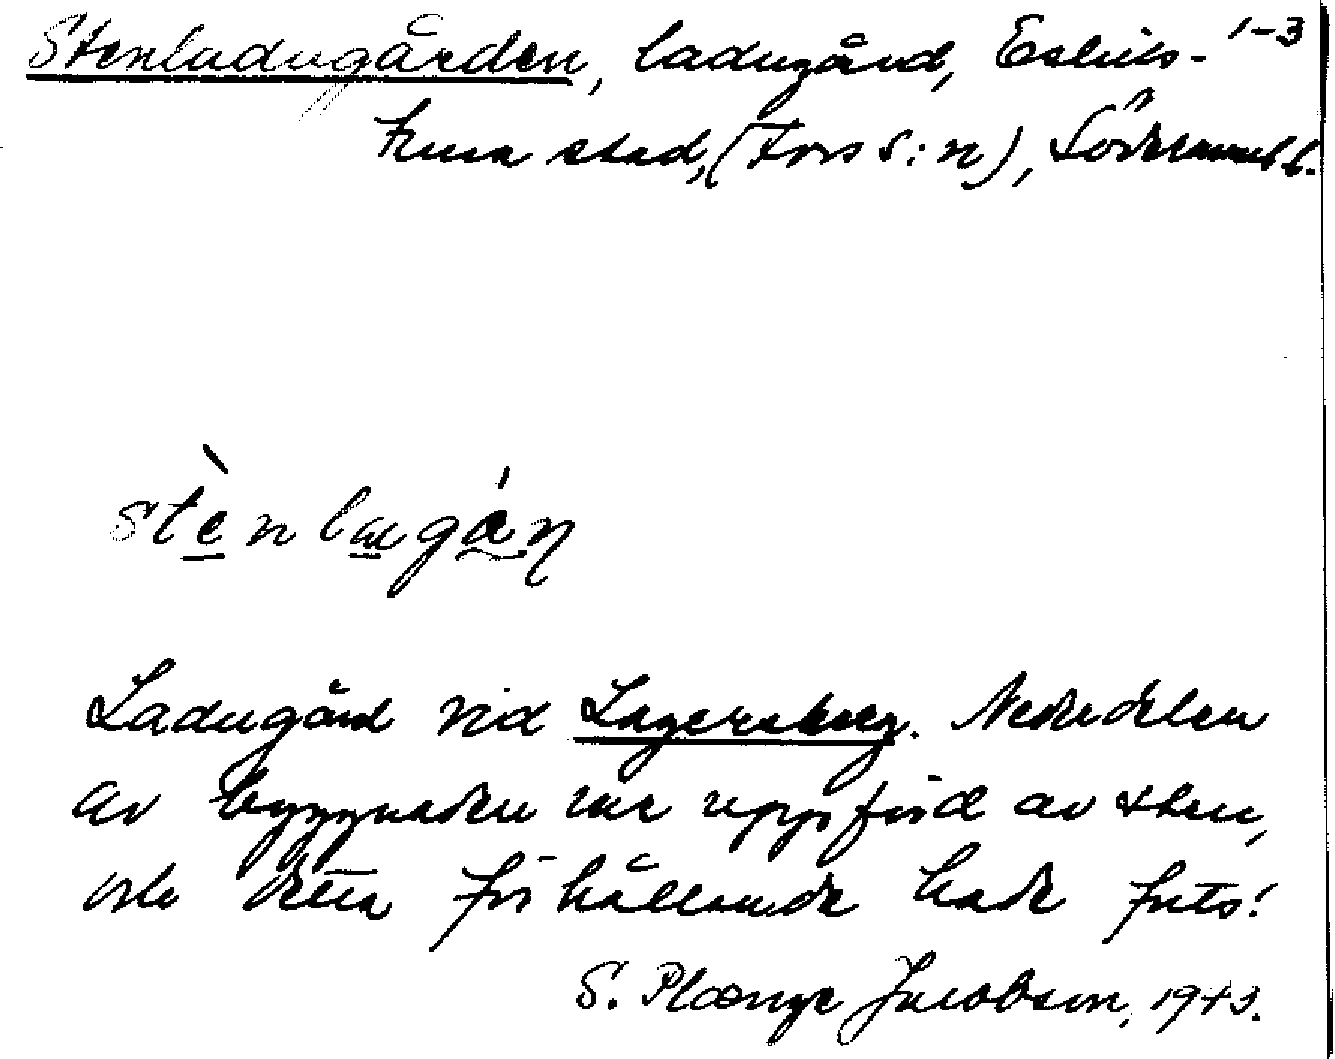 Stenladugården, ladugård, Eskils- 1-3
tuna stad, (Fors s:n), Södermanl. l.
stènlagán
Ladugård vid Lagersberg. Nederdelen
av byggnaden var uppförd av sten,
och detta förhållande hade
S. Plænge Jacobson, 1943.